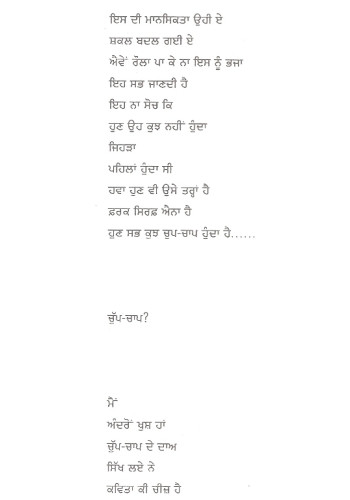 ਇਸ ਦੀ ਮਾਨਸਿਕਤਾ ਉਹੀ ਏ
ਸ਼ਕਲ ਬਦਲ ਗਈ ਏ
ਐਵੇਂ ਰੌਲਾ ਪਾ ਕੇ ਨਾ ਇਸ ਨੂੰ ਭਜਾ
ਇਹ ਸਭ ਜਾਣਦੀ ਹੈ
ਇਹ ਨਾ ਸੋਚ ਕਿ
ਹੁਣ ਉਹ ਕੁਝ ਨਹੀਂ ਹੁੰਦਾ
ਜਿਹੜਾ
ਪਹਿਲਾਂ ਹੁੰਦਾ ਸੀ
ਹਵਾ ਹੁਣ ਵੀ ਉਸੇ ਤਰ੍ਹਾਂ ਹੈ
ਫ਼ਰਕ ਸਿਰਫ਼ ਐਨਾ ਹੈ
ਹੁਣ ਸਭ ਕੁਝ ਚੁਪ-ਚਾਪ ਹੁੰਦਾ ਹੈ......
ਚੁੱਪ-ਚਾਪ?
ਮੈਂ
ਅੰਦਰੋਂ ਖੁਸ਼ ਹਾਂ
ਚੁੱਪ-ਚਾਪ ਦੇ ਦਾਅ
ਸਿੱਖ ਲਏ ਨੇ
ਕਵਿਤਾ ਕੀ ਚੀਜ਼ ਹੈ